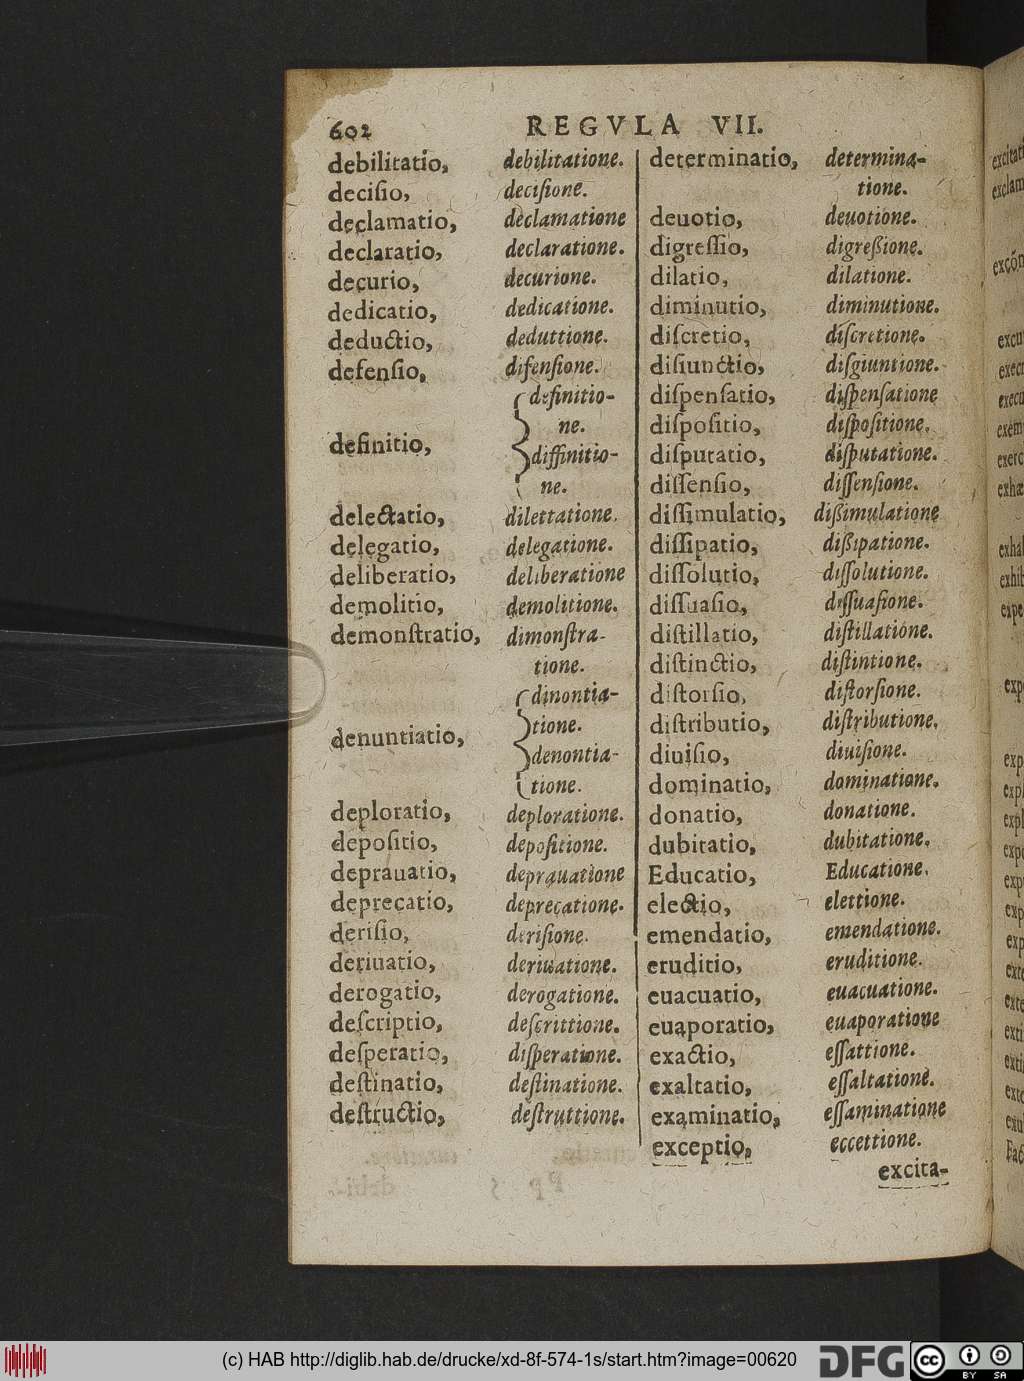 602 REGVLA VII.
debilitatio, debilitatione.
decisio, decisione.
declamatio, declamatione
declaratio, declaratione.
decurio, decurione.
dedicatio, dedicatione.
deductio, deduttione.
defensio, difensione.
definitio-
ne.
definitio,
diffinitio-
ne.
delectatio, dilettatione.
delegatio, delegatione.
deliberatio, deliberatione
demolitio, demolitione.
demonstratio, dimonstra-
tione.
dinontia-
tione.
denuntiatio,
denontia-
tione.
deploratio, deploratione.
depositio, depositione.
deprauatio, deprauatione
deprecatio, deprecatione.
derisio, derisione.
deriuatio, deriuatione.
derogatio, derogatione.
descriptio, descrittione.
desperatio, disperatione.
destinatio, destinatione.
destructio, destruttione.
determinatio, determina-
tione.
deuotio, deuotione.
digressio, digreßione.
dilatio, dilatione.
diminutio, diminutione.
discretio, discretione.
disiunctio, disgiuntione.
dispensatio, dispensatione
dispositio, dispositione.
disputatio, disputatione.
dissensio, dissensione.
dissimulatio, dißimulatione
dissipatio, dißipatione.
dissolutio, dissolutione.
dissuasio, dissuasione.
distillatio, distillatione.
distinctio, distintione.
distorsio, distorsione.
distributio, distributione.
diuisio, diuisione.
dominatio, dominatione.
donatio, donatione.
dubitatio, dubitatione.
Educatio, Educatione.
electio, elettione.
emendatio, emendatione.
eruditio, eruditione.
euacuatio, euacuatione.
euaporatio, euaporatione
exactio, essattione.
exaltatio, essaltatione.
examinatio, essaminatione
exceptio, eccettione.
excita-
(c) HAB http://diglib.hab.de/drucke/xd-8f-574-1s/start.htm?image=00620
DFG
cc
BY SA